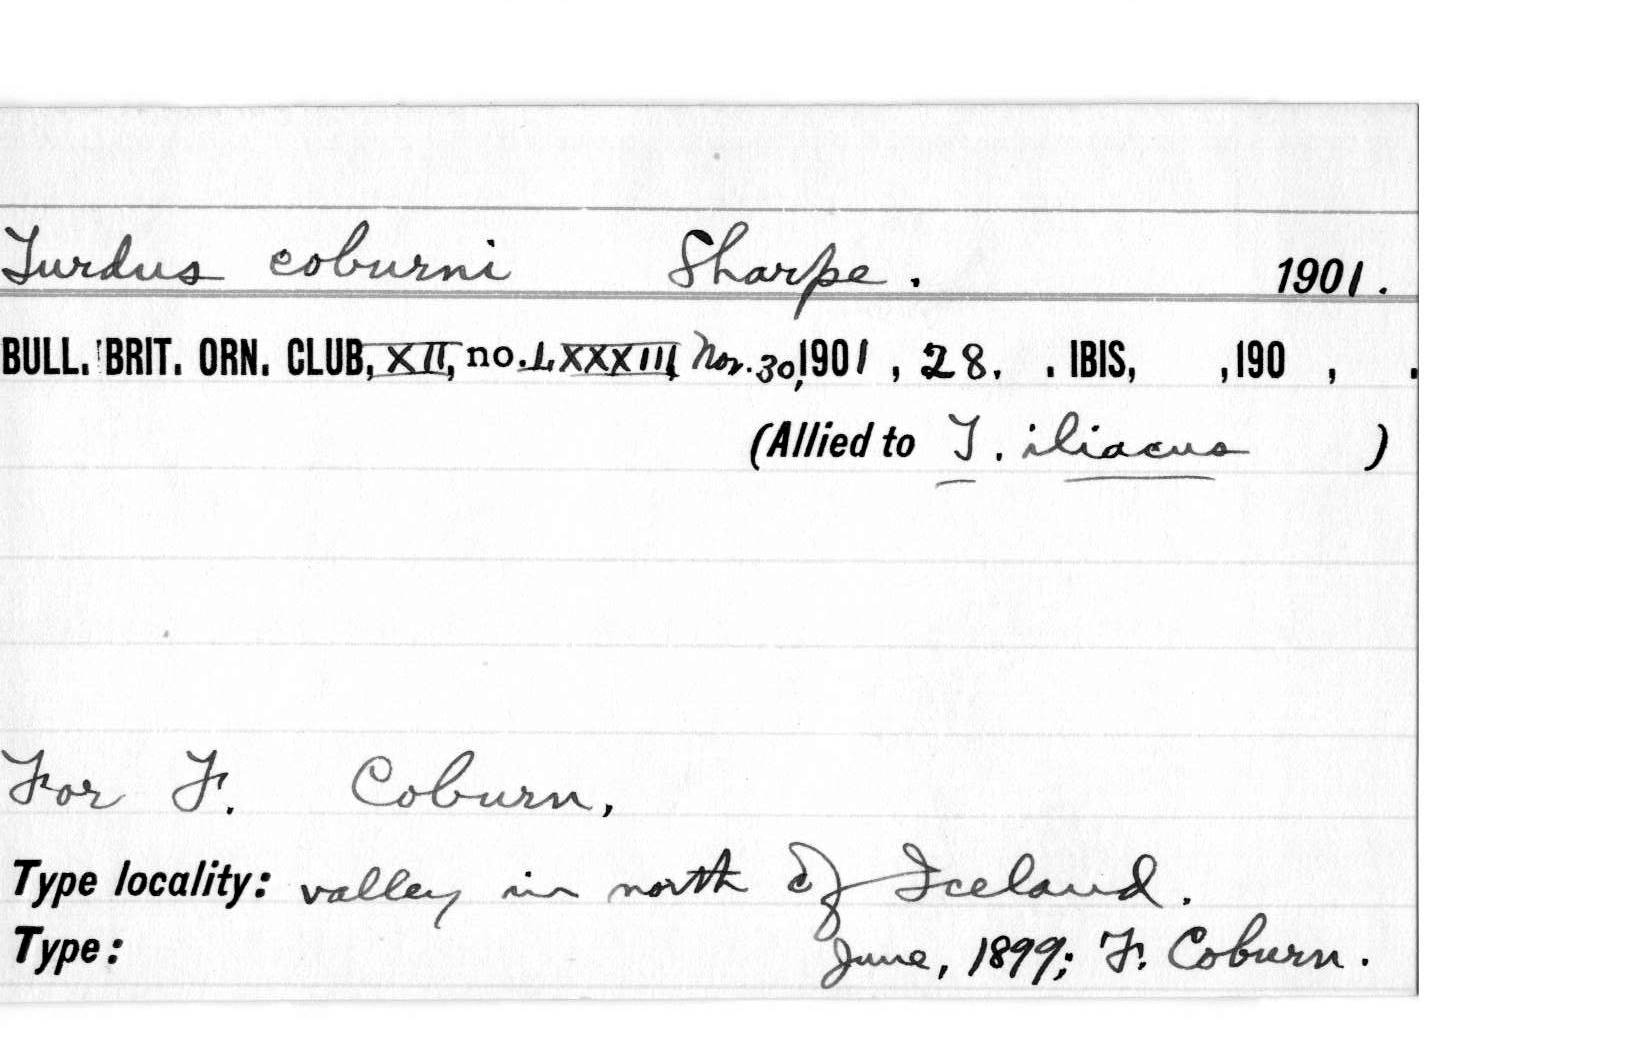 Turdus coburni Sharpe. 1901.
BULL. BRIT. ORN. CLUB, XII, no. LXXXIII, Nov. 30, 1901, 28. . IBIS, ,190 , .
(Allied to T. iliacus )
For F. Coburn,
Type locality: valley in north of Iceland.
Type: June, 1899; F. Coburn.